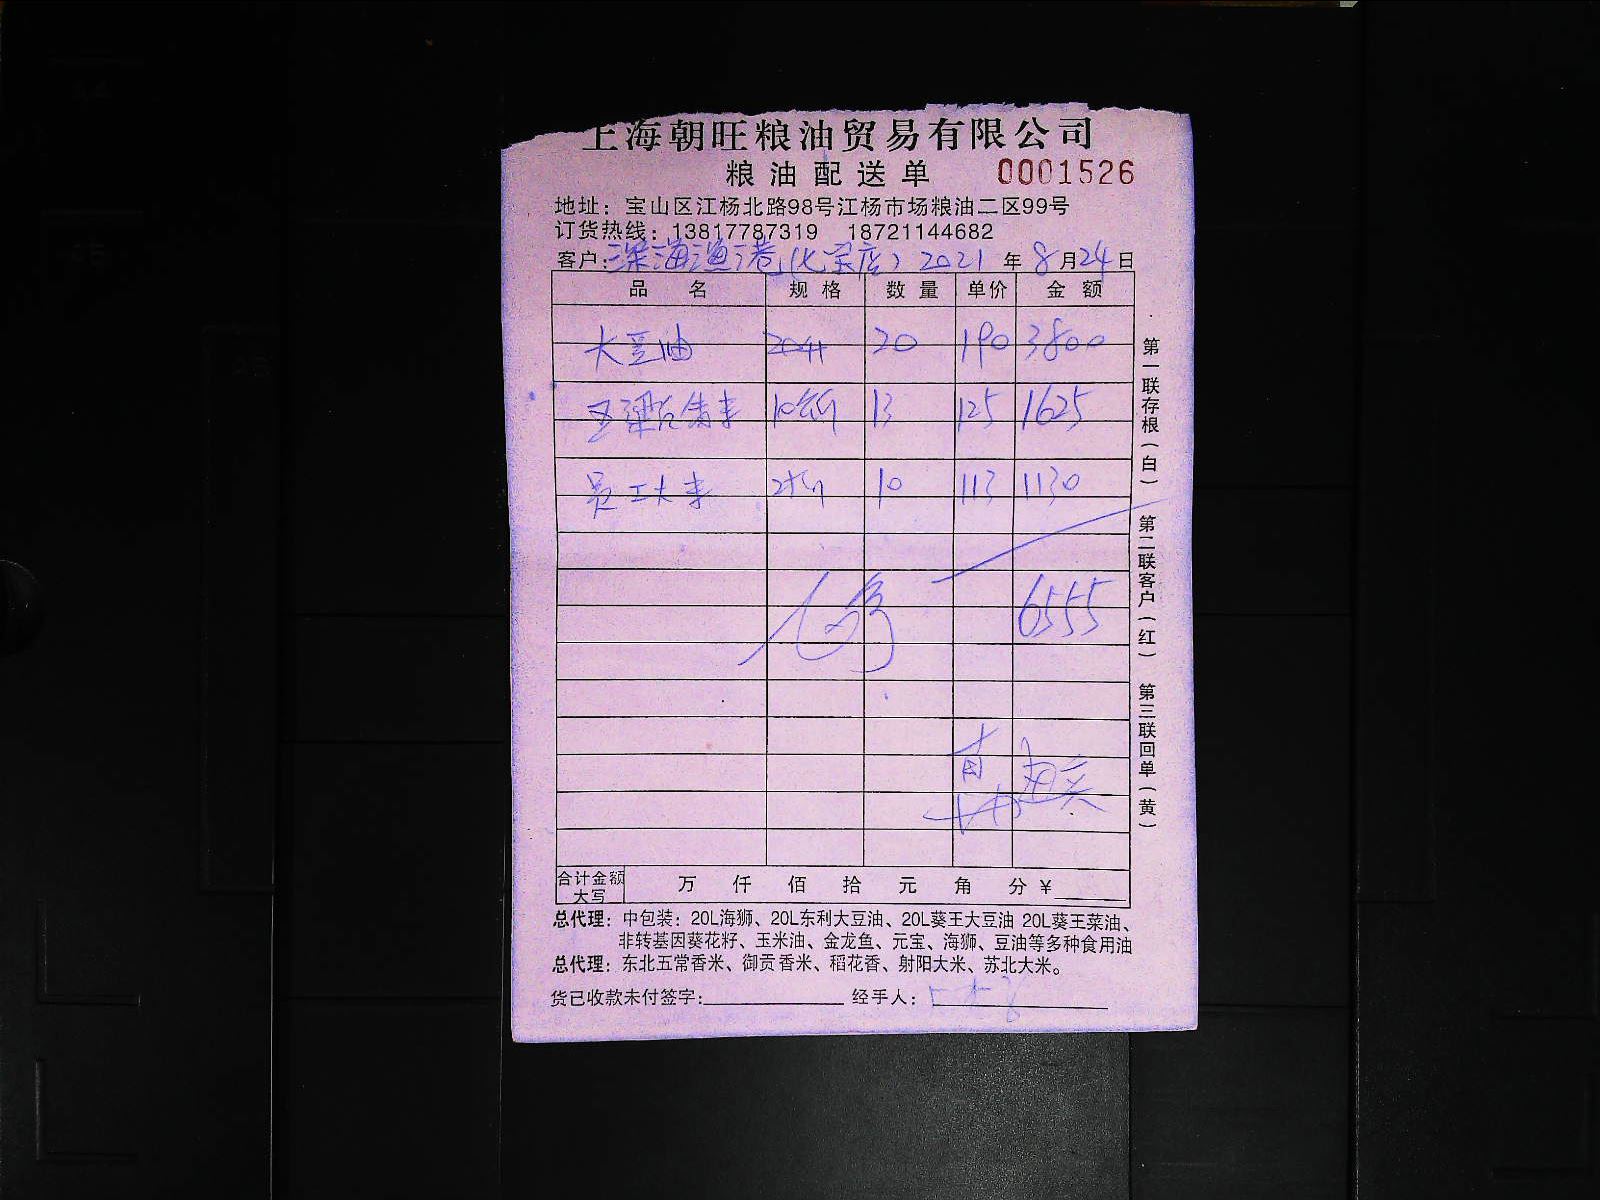 上海朝旺粮油贸易有限公司
粮油配送单 0001526
地址：宝山区江杨北路98号江杨市场粮油二区99号
订货热线：13817787319 18721144682
客户：深海渔港（七宝店）2021年8月24日
品名 规格 数量 单价 金额
大豆油 20升 20 190 3800
10斤 13 125 1625
员工大米 10 113 1130
6555
合计金额大写 万 仟 佰 拾 元 角 分 ¥
总代理：中包装：20L海狮、20L东利大豆油、20L葵王大豆油 20L葵王菜油、
非转基因葵花籽、玉米油、金龙鱼、元宝、海狮、豆油等多种食用油
总代理：东北五常香米、御贡香米、稻花香、射阳大米、苏北大米。
货已收款未付签字： 经手人：
第一联存根（白） 第二联客户（红） 第三联回单（黄）